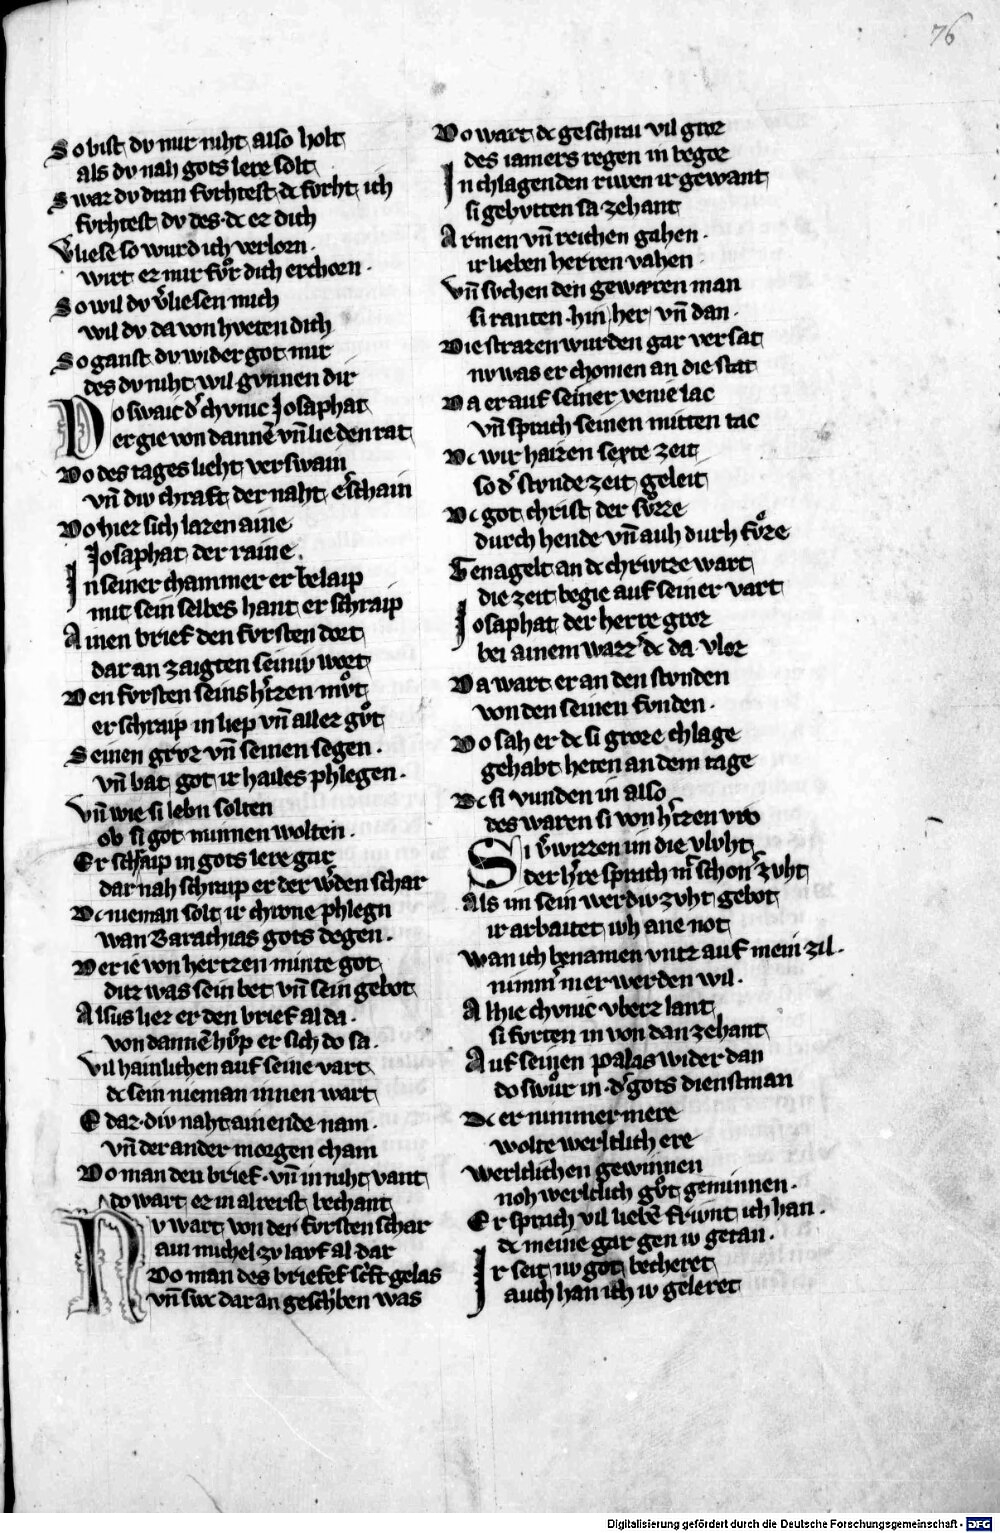 76
So bist dv mir niht also holt
als dv nah gots lere solt
Swar dv dirin fvrhtest dc fvrht ich
fvrhtest dv des dc er dich
Vliese so wurd ich verlorn.
wirt er mir fvͦr dich erchorn.
So wil dv v̓liesen mich
wil dv da von hveten dich
So ganst dv wider got mir
des dv niht wil gvnnen dir
Do swaic d̓ chvnic Josaphat
er gie von dannē vn̄ lie den rat
Do des tages lieht verswain
vn̄ div chraft der naht er̓schain
Do hiez sich lazen aine
Josaphat der raine.
In seiner chammer er belaip
mit sein selbes hant er schraip
Ainen brief den fvrsten dort
dar an zaigten seiniv wort
Den fvrsten seins h̓tzen mvͦt
er schraip in liep vn̄ allez gvͦt
Seinen grvz vn̄ seinen segen.
vn̄ bat got ir hailes phlegen.
Vn̄ wie si lebn solten
ob si got minnen wolten.
Er schraip in gots lere gar
dar nah schraip er der w̓den schar
Dc nieman solt ir chrone phlegn
wan Barachias gots degen.
Der ie von hertzen minte got
ditz was sein bet vn̄ sein gebot
Alsus liez er den brief al da.
von dannē hvͦp er sich do sa.
Vil hainlichen auf seine vart
dc sein nieman innen wart
E daz div naht ain ende nam.
vn̄ der ander morgen cham
Do man den brief vn̄ in niht vant
do wart ez in alrerst bechant
Nv wart von den fvrsten schar
ain michel zv lavf al dar
Do man des briefes sc̓ft gelas
vn̄ swc dar an gesch̓ben was
Do wart dc geschrai vil groz
des iamers regen in begoz
In chlagenden riwen ir gewant
si gebvtten sa zehant
Armen vn̄ reichen gahen.
ir lieben herren vahen
Vn̄ svchen den gewæren man
si ranten hin her vn̄ dan.
Die strazen wurden gar versat
nv was er chomen an die stat
Da er auf seiner venie lac
vn̄ sprach seinen mitten tac
Dc wir haizen sexte zeit
so d̓ stvnde zeit geleit
Dc got christ der svzze
durch hende vn̄ auh durh fvͦze
Genagelt an dc chriwtze wart
die zeit begie auf seiner vart
Josaphat der herre groz
bei ainem wazz̓ dc da vloz
Da wart er an den stvnden
von den seinen fvnden.
Do sah er dc si groze chlage
gehabt heten an dem tage
Dc si vunden in also
des waren si von h̓tzen vro
Si v̓wizzen im die vlvht
der h̓re sprach m̓ schon̓ zvht
Als im sein werdiv zvht gebot
ir arbaitet iwh ane not
Wan ich benamen vntz auf mein zil.
nimm̓ mer werden wil.
Al hie chvnic vberz lant
si fvrten in von dan zehant
Auf seinen palas wider dan
do swuͦr in d̓ gots dienstman
Dc er nimmer mere
wolte werltlich ere
Werltlichen gewinnen
noh werltlich gvͦt geminnen.
Er sprach vil liebē friwnt ich han.
dc meine gar gen iv getan.
Ir seit nv got becheret
auch han ich iv geleret
Digitalisierung gefördert durch die Deutsche Forschungsgemeinschaft - DFG